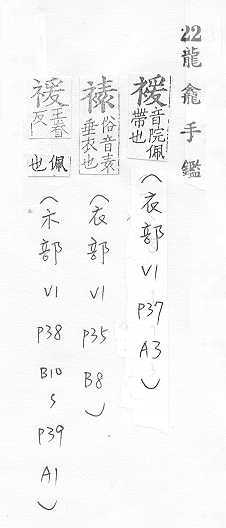 22 龍龕手鑑
褑 音院佩帶也 （衣部 V1 P37 A3）
俗音素垂衣也 （衣部 V1 P35 B8）
禐 王眷反佩也 （示部 V1 P38 B10 ~ P39 A1）